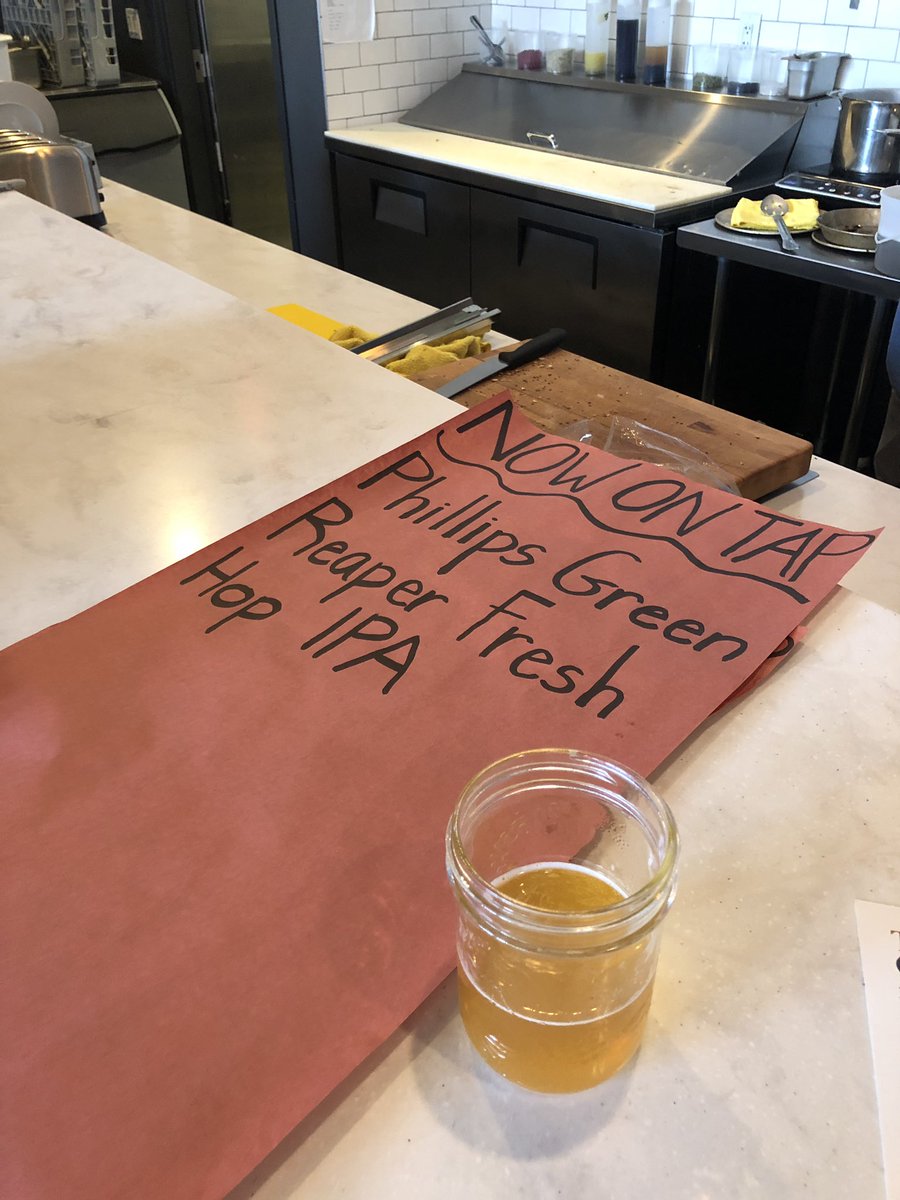 NOW ON TAP
Phillips Green
Reaper Fresh
Hop IPA